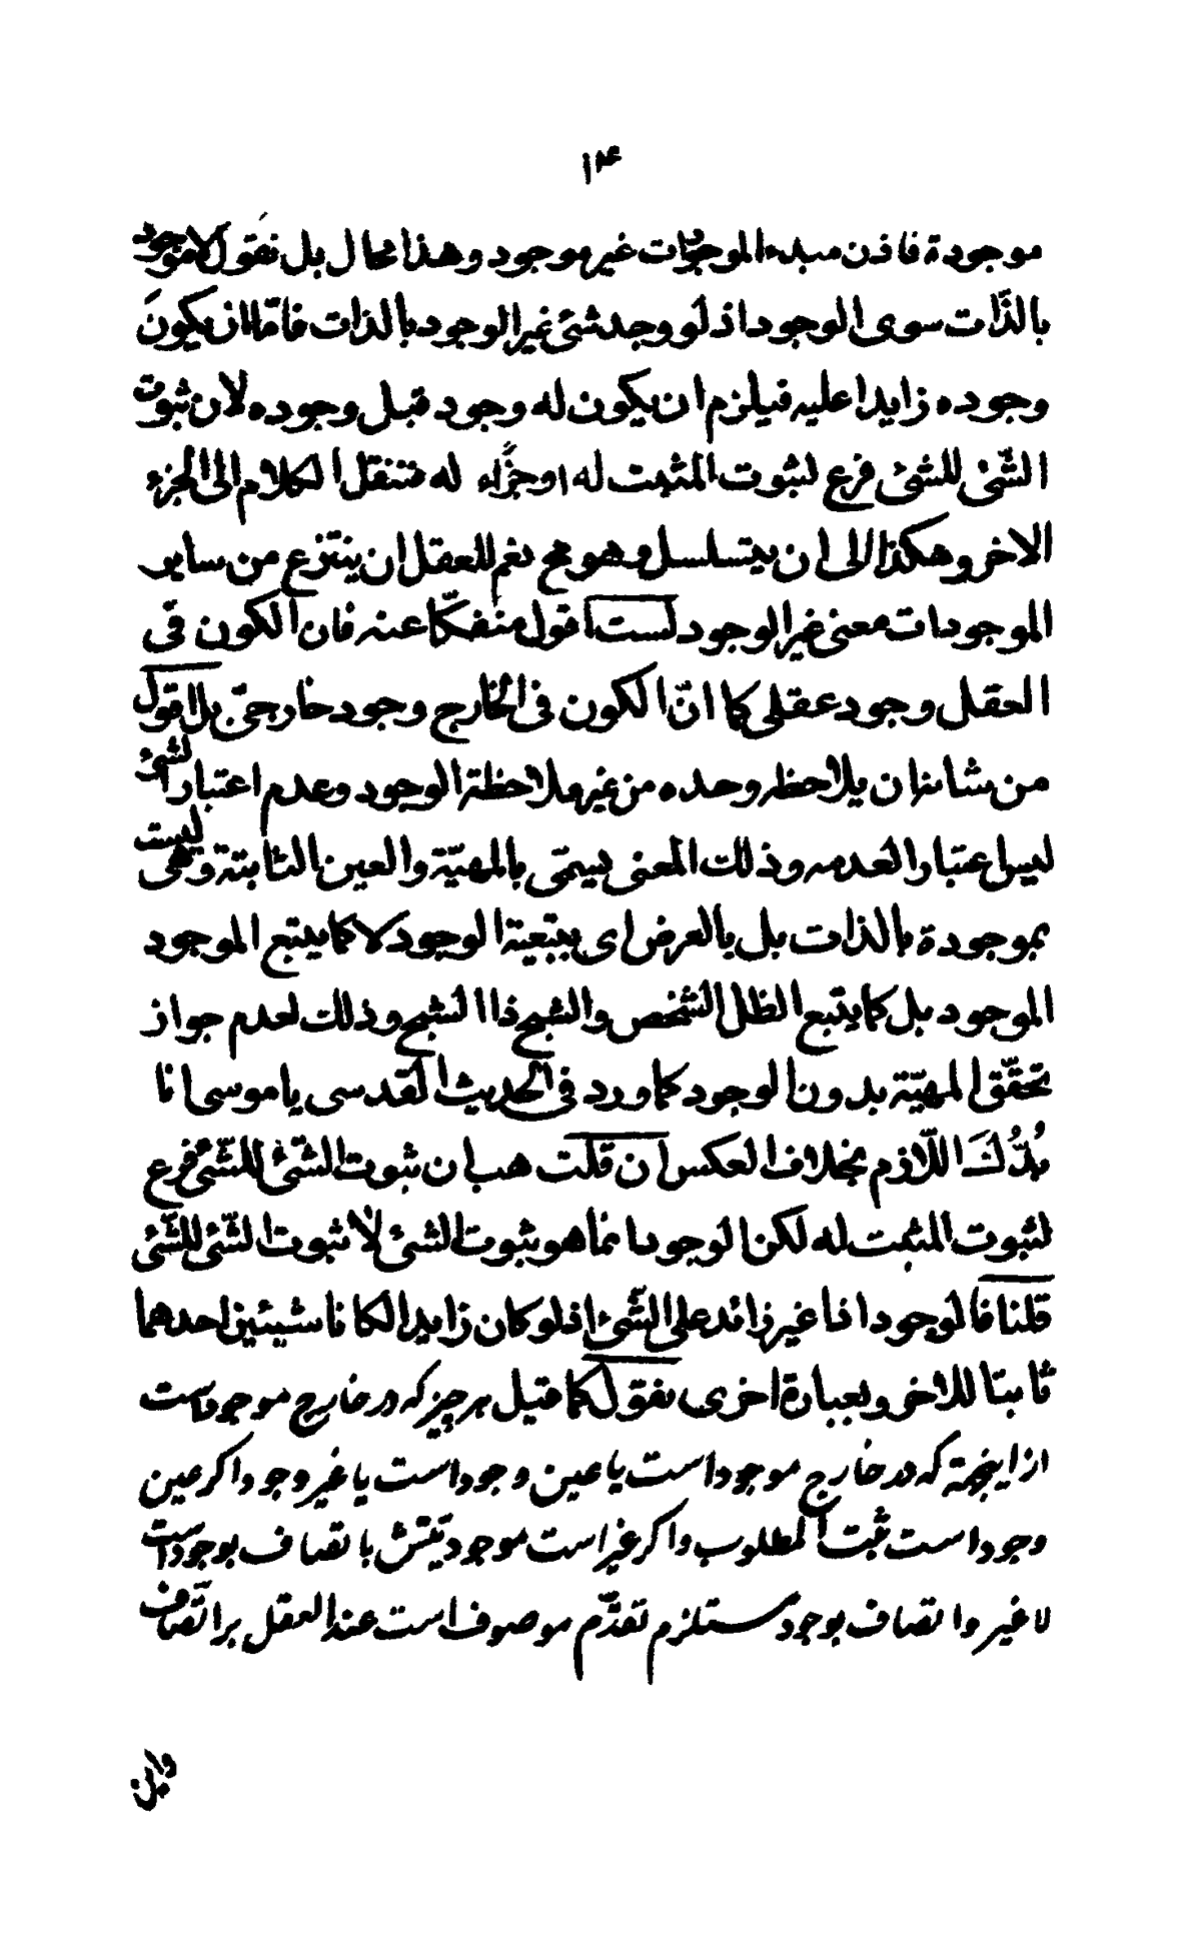 ۱۴
موجودة فاذن مبدء الموجودات غير موجود وهذا محال بل نقول لا موجود
بالذّات سوى الوجود اذ لو وجد شئ غير الوجود بالذات فامّا ان يكونَ
وجوده زايدا عليه فيلزم ان يكون له وجود قبل وجوده لان ثبوت
الشّئ للشئ فرع لثبوت المثبت له او جزًاء له فننقل الكلام الى الجزء
الاخر وهكذا الى ان يتسلسل وهو مح نعم للعقل ان ينتزع من ساير
الموجودات معنى غير الوجود لست اقول منفكّا عنه فان الكون فى
العقل وجود عقلى كما انّ الكون فى الخارج وجود خارجىّ بل اقول
من شانه ان يلاحظه وحده من غير ملاحظة الوجود وعدم اعتبار الشئ
ليس اعتبار العدمه وذلك المعنى يسمّى بالمهيّة والعين الثابتة وهى ليست
بموجودة بالذات بل بالعرض اى بتبعية الوجود لا كما يتبع الموجود
الموجود بل كما يتبع الظل الشخص والشبح ذا الشبح وذلك لعدم جواز
تحقّق المهيّة بدون الوجود كما ورد فى الحديث القدسى يا موسى انا
بُدُّكَ اللّازم بخلاف العكس ان قلت هب ان ثبوت الشّئ للشّئ فرع
لثبوت المثبت له لكن الوجود انما هو ثبوت الشئ لا ثبوت الشّئ للشّئ
قلنا فالوجود اذا غير زائد على الشّئ اذ لو كان زايدا لكانا شيئين احدهما
ثابتا للاخر وبعبارة اخرى نقول كما قيل هر چيز كه در خارج موجود است
از اينجهة كه در خارج موجود است يا عين وجود است يا غير وجود اكر عين
وجود است ثبت المطلوب واكر غير است موجوديّتش باتصاف بوجود است
لا غير واتصاف بوجود مستلزم تقدّم موصوف است عند العقل بر اتّصاف
واين